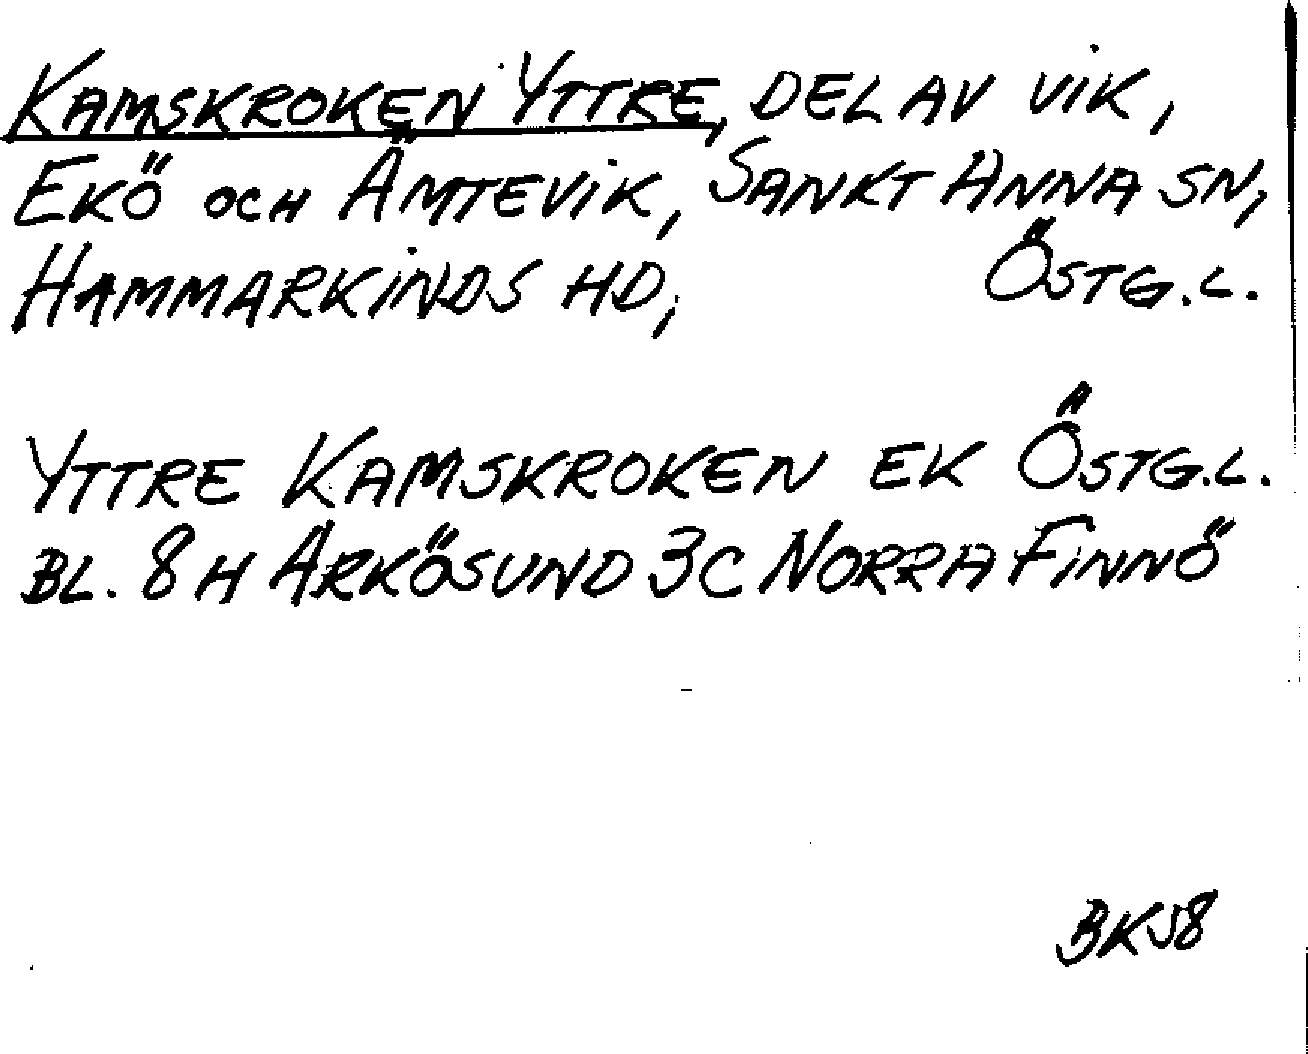 KAMSKROKEN YTTRE, DEL AV VIK,
EKÖ OCH ÄMTEVIK, SANKT ANNA SN,
HAMMARKINDS HD, ÖSTG.L.
YTTRE KAMSKROKEN EK ÖSTG.L.
BL. 8H ARKÖSUND 3C NORRA FINNÖ
BK58